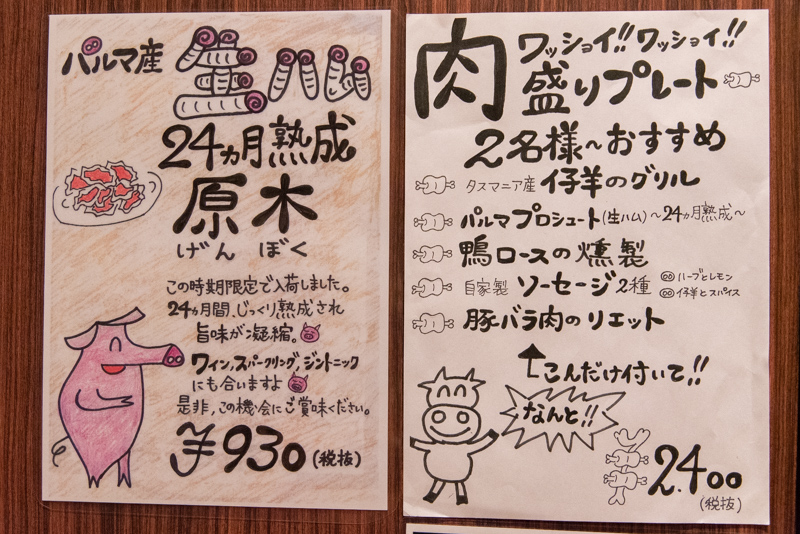 パルマ産 生ハム
24ヵ月熟成
原木
げんぼく
この時期限定で入荷しました。
24ヵ月間、じっくり熟成され
旨味が凝縮。
ワイン,スパークリング,ジントニック
にも合いますよ
是非,この機会にご賞味ください。
¥930(税抜)
肉ワッショイ!!ワッショイ!!
盛りプレート
2名様〜おすすめ
タスマニア産 仔羊のグリル
パルマプロシュート(生ハム)〜24ヵ月熟成〜
鴨ロースの燻製
自家製 ソーセージ2種
ハーブとレモン
仔羊とスパイス
豚バラ肉のリエット
こんだけ付いて!!
なんと!!
2.400
(税抜)